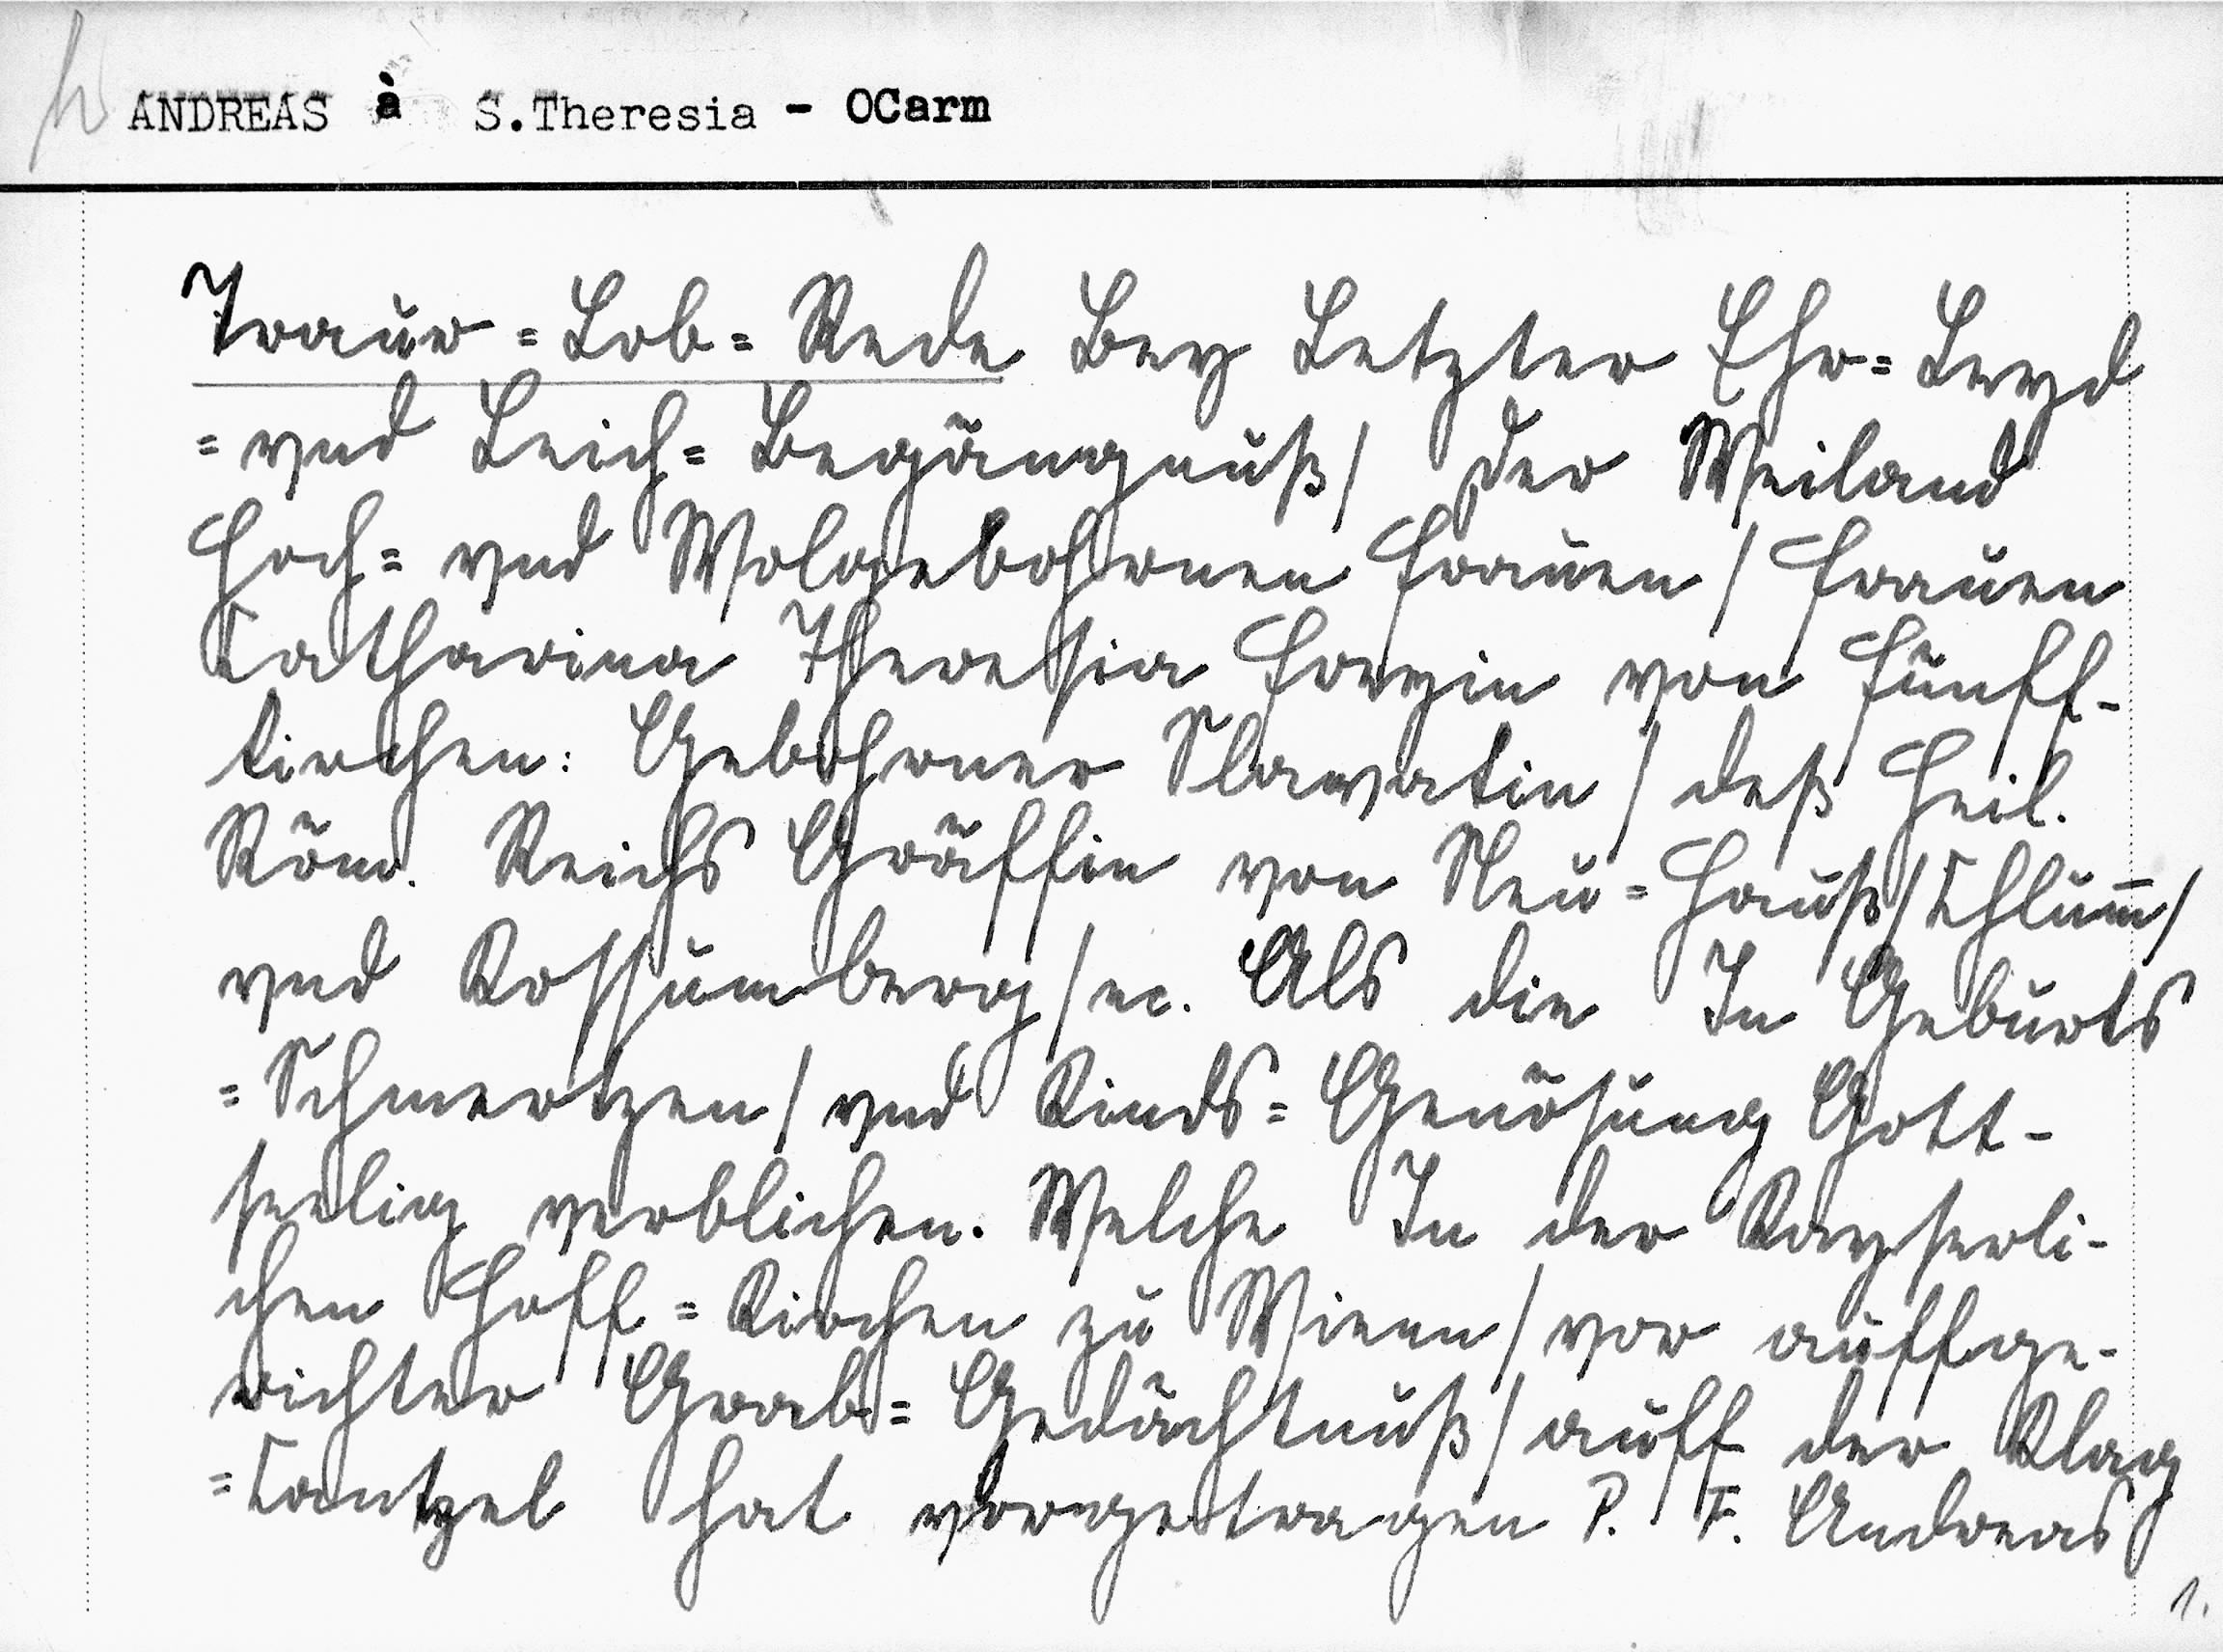 ANDREAS à S.Theresia - OCarm
Traur = Lob = Rede Bey Letzter Ehr = Leyd
= vnd Leich = Begängnuß / Der Weiland
Hoch = vnd Wolgebohrnen Frauen / Frauen
Catharina Theresia Freyin von Fünff-
kirchen: Gebohrner Slawatin / deß Heil.
Röm. Reichs Gräffin von Neu = Hauß / Chlum̄ /
vnd Kossumberg / ec. Als die In Geburts
= Schmertzen / vnd Kinds = Genösung Gott-
seelig verblichen. Welche In der Kayserli-
chen Hoff = Kirchen zu Wienn / vor auffge-
richter Grab = Gedächtnuß / auff der Klag
= Cantzel hat vorgetragen P. F. Andreas
1.